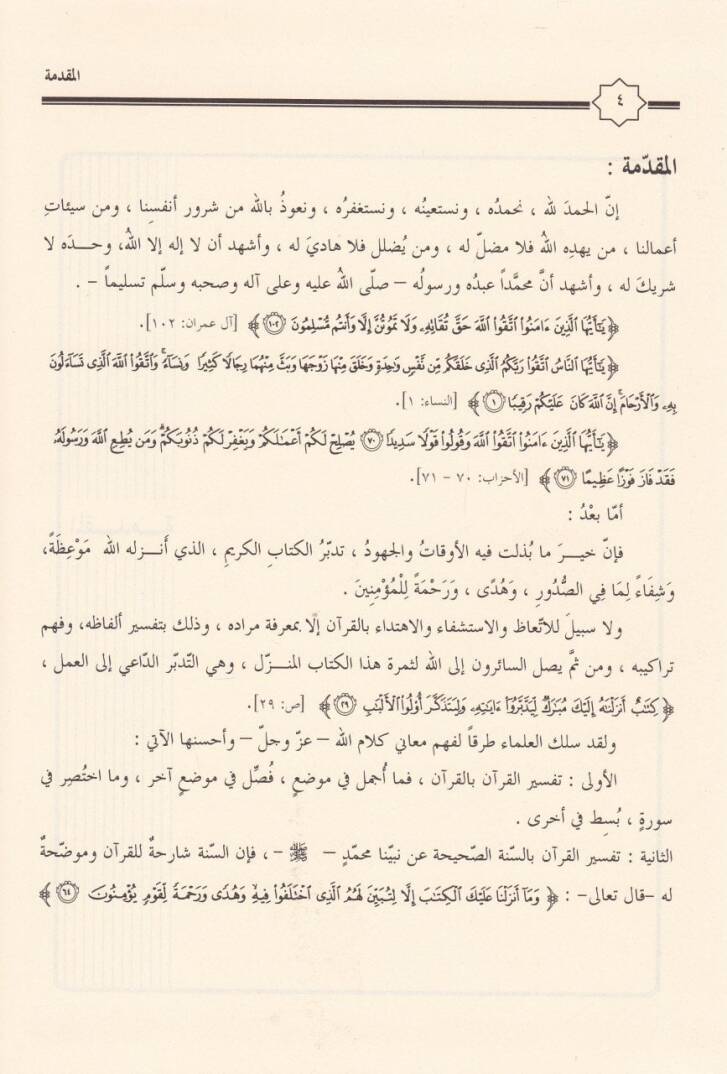 المقدمة
٤
المقدّمة :
إنّ الحمدَ لله ، نحمدُه ، ونستعينُه ، ونستغفرُه ، ونعوذُ بالله من شرور أنفسِنا ، ومن سيئاتِ
أعمالنا ، من يهدِهِ اللهُ فلا مضلّ له ، ومن يُضلل فلا هاديَ له ، وأشهد أن لا إله إلا اللهُ، وحــدَه لا
شريكَ له ، وأشهد أنَّ محمَّداً عبدُه ورسولُه – صلّى اللهُ عليه وعلى آله وصحبه وسلّم تسليماً – .
﴿ يَٰٓأَيُّهَا ٱلَّذِينَ ءَامَنُوا۟ ٱتَّقُوا۟ ٱللَّهَ حَقَّ تُقَاتِهِۦ وَلَا تَمُوتُنَّ إِلَّا وَأَنتُم مُّسْلِمُونَ ١٠٢ ﴾ [آل عمران: ١٠٢].
﴿ يَٰٓأَيُّهَا ٱلنَّاسُ ٱتَّقُوا۟ رَبَّكُمُ ٱلَّذِى خَلَقَكُم مِّن نَّفْسٍ وَٰحِدَةٍ وَخَلَقَ مِنْهَا زَوْجَهَا وَبَثَّ مِنْهُمَا رِجَالًا كَثِيرًا وَنِسَآءً ۚ وَٱتَّقُوا۟ ٱللَّهَ ٱلَّذِى تَسَآءَلُونَ
بِهِۦ وَٱلْأَرْحَامَ ۚ إِنَّ ٱللَّهَ كَانَ عَلَيْكُمْ رَقِيبًا ١ ﴾ [النساء: ١].
﴿ يَٰٓأَيُّهَا ٱلَّذِينَ ءَامَنُوا۟ ٱتَّقُوا۟ ٱللَّهَ وَقُولُوا۟ قَوْلًا سَدِيدًا ٧٠ يُصْلِحْ لَكُمْ أَعْمَٰلَكُمْ وَيَغْفِرْ لَكُمْ ذُنُوبَكُمْ ۗ وَمَن يُطِعِ ٱللَّهَ وَرَسُولَهُۥ
فَقَدْ فَازَ فَوْزًا عَظِيمًا ٧١ ﴾ [الأحزاب: ٧٠ – ٧١].
أمّا بعْدُ :
فإنّ خيــرَ ما بُذلت فيه الأوقاتُ والجهودُ ، تدبّرُ الكتابِ الكريمِ ، الذي أنــزله الله مَوْعِظَةً،
وَشِفَاءً لِمَا فِي الصُّدُورِ ، وَهُدًى ، وَرَحْمَةً لِلْمُؤْمِنِينَ .
ولا سبيلَ للاتّعاظ والاستشفاء والاهتداء بالقرآن إلّا بمعرفة مراده ، وذلك بتفسير ألفاظه، وفهم
تراكيبه ، ومن ثمَّ يصل السائرون إلى الله لثمرة هذا الكتاب المنــزّل ، وهي التّدبّر الدّاعي إلى العمل ،
﴿ كِتَٰبٌ أَنزَلْنَٰهُ إِلَيْكَ مُبَٰرَكٌ لِّيَدَّبَّرُوٓا۟ ءَايَٰتِهِۦ وَلِيَتَذَكَّرَ أُو۟لُوا۟ ٱلْأَلْبَٰبِ ٢٩ ﴾ [ص: ٢٩].
ولقد سلك العلماء طرقاً لفهم معاني كلام الله – عزّ وجلّ – وأحسنها الآتي :
الأولى : تفسير القرآن بالقرآن ، فما أُجمل في موضعٍ ، فُصِّل في موضعٍ آخر ، وما اختُصِر في
سورةٍ ، بُسِط في أخرى .
الثانية : تفسير القرآن بالسّنة الصّحيحة عن نبيّنا محمّدٍ – ﷺ –، فإن السّنة شارحةٌ للقرآن وموضّحةٌ
له –قال تعالى– : ﴿ وَمَآ أَنزَلْنَا عَلَيْكَ ٱلْكِتَٰبَ إِلَّا لِتُبَيِّنَ لَهُمُ ٱلَّذِى ٱخْتَلَفُوا۟ فِيهِ ۙ وَهُدًى وَرَحْمَةً لِّقَوْمٍ يُؤْمِنُونَ ٦٤ ﴾